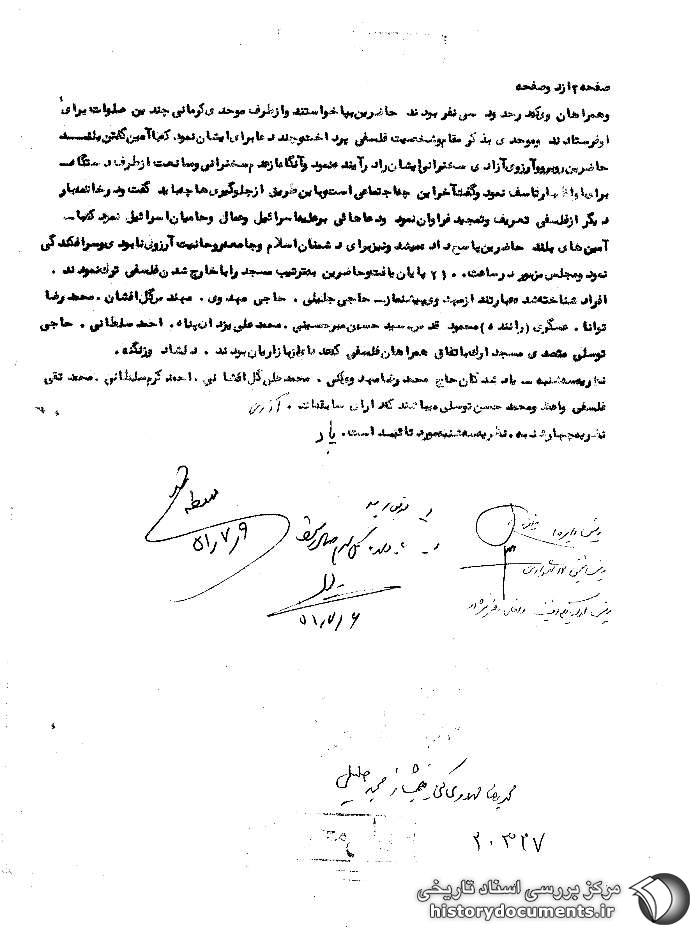 صفحه ۲ از دو صفحه
وهمراهان وی که در حدود سی نفر بودند حاضرین بپا خواستند و از طرف موحدی کرمانی چندین صلوات برای
او فرستادند وموحدی بذکر مقام وشخصیت فلسفی پرداخت وچند دعا برای ایشان نمود که با آمین گفتن بلند
حاضرین روبرو و آرزوی آزادی سخنرانی ایشان را در آینده نمود وآنگاه از عدم سخنرانی وممانعت از طرف دستگاه
برای او اظهار تاسف نمود وگفت آخر این چه اجتماعی است وباین طریق از جلوگیری ها چه باید گفت ودر خاتمه بار
دیگر از فلسفی تعریف وتمجید فراوان نمود ودعاهائی بر علیه اسرائیل وعمال وحامیان اسرائیل نمود که با
آمین های بلند حاضرین پاسخ داده میشد ونیز برای دشمنان اسلام وجامعه روحانیت آرزوی نابودی وسرافکندگی
نمود ومجلس مزبور در ساعت ۲۱۰۰ پایان یافت وحاضرین بترتیب مسجد را با خارج شدن فلسفی ترک نمودند .
افراد شناخته شده عبارتند از مهدوی پیشنماز حاجی جلیلی . حاجی مهدوی . مهندس گل افشان . محمد رضا
توانا . عسگری (راننده) محمود قدس سید حسین میرحسینی . محمد علی یزدان پناه . احمد سلطانی . حاجی
توسلی متصدی مسجد ارک باتفاق همراهان فلسفی که عده ای از بازاریان بودند . دلشاد وزنگنه .
نظریه سه شنبه یاد شدگان حاج محمد رضا مهدوی کنی . محمد علی گل افشانی . احمد کرم سلطانی . محمد تقی
فلسفی واعظ ومحمد حسن توسلی میباشند که دارای سابقه اند . آذری
نظریه چهارشنبه . نظریه سه شنبه مورد تائید است . یاد
۵۱٫۷٫۹
۵۱٫۷٫۶
محمدرضا مهدوی کنی پیشنماز مسجد جلیلی
۲۰۳۲۷
مرکز بررسی اسناد تاریخی
historydocuments.ir